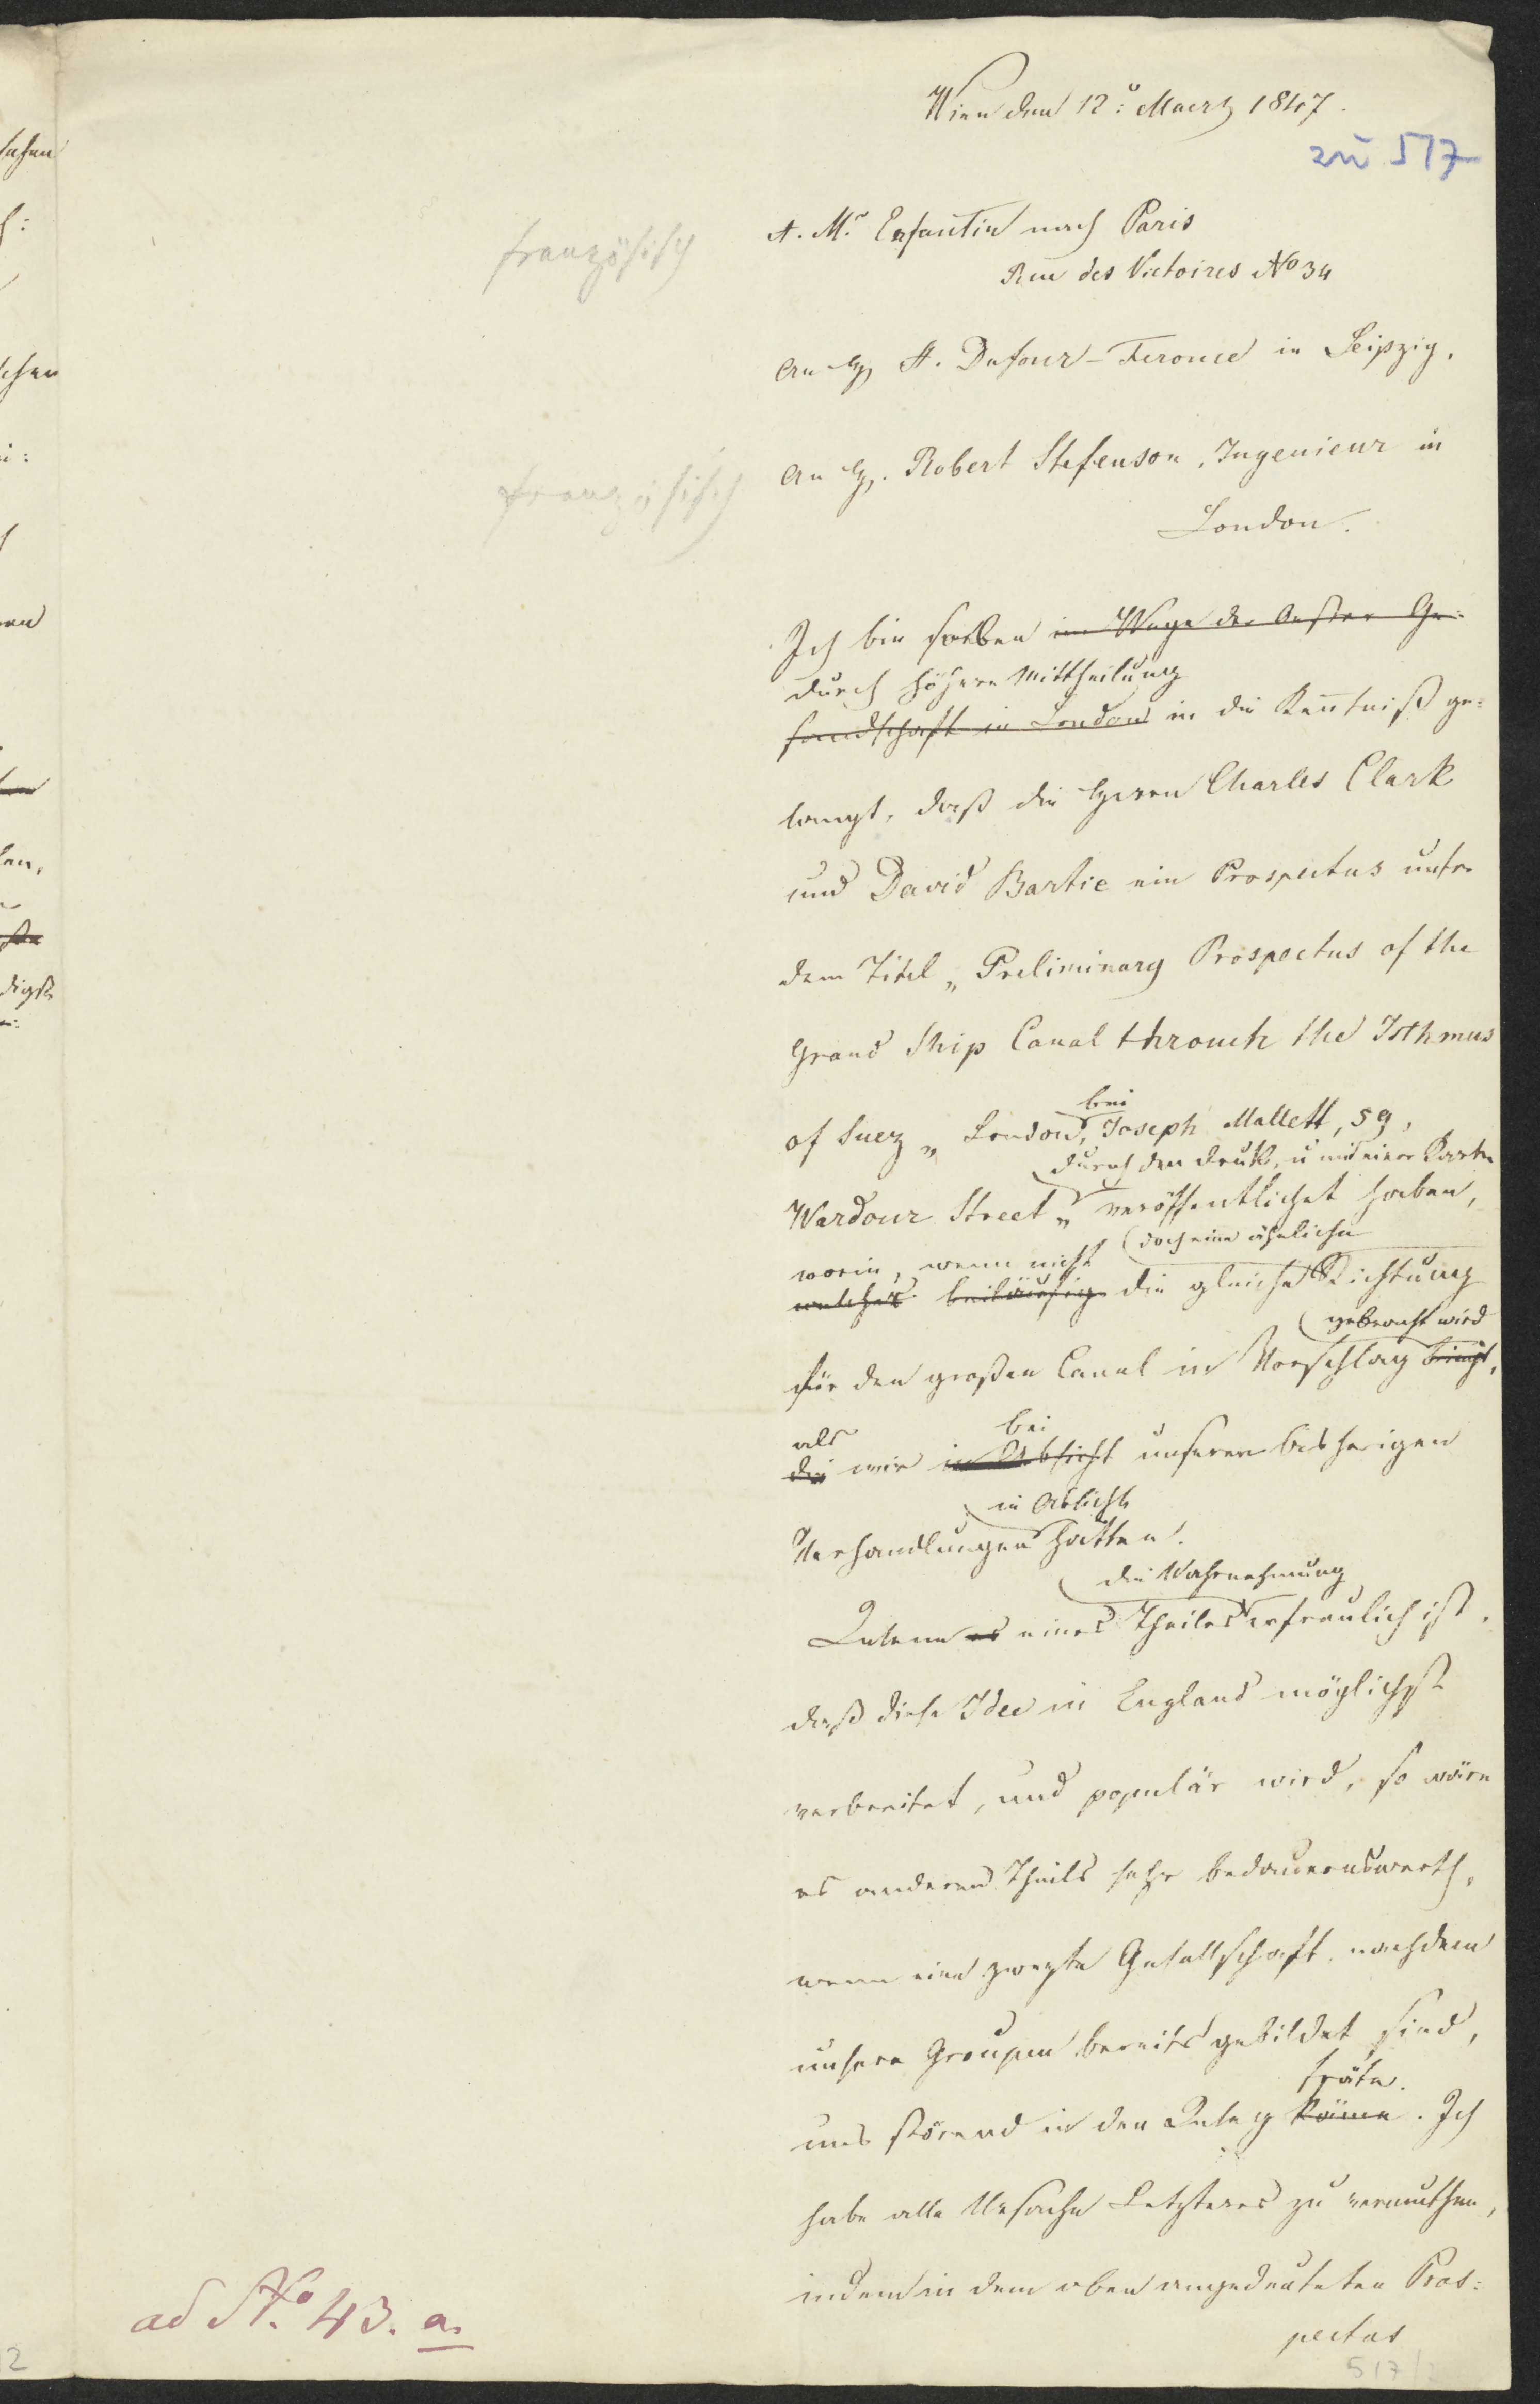 Wien den 12: Maerz 1847.
zu 517
französisch
A. Mr Enfantin nach Paris
Rue des Victoires No 34
An H. A. Dufour-Feronce in Leipzig.
französisch
An H. Robert Stefenson, Ingenieur in
London.
Ich bin soeben im Wege der Oester Ge=
durch höhere Mittheilung
sandtschaft in London in die Kenntniß ge=
langt, daß die Herren Charles Clark
und David Bartie ein Prospectus unter
dem Titel „Preliminary Prospectus of the
Grand Ship Canal throuch the Isthmus
bei
of Suez „ London, Joseph Mallett, 59,
durch den Druk, u mit einer Karte
Wardour Street „ veröffentlichet haben,
worin, wenn nicht doch eine ähnliche
welches beiläufig die gleiche Richtung
gebracht wird
für den großen Canal in Vorschlag bringt,
als bei
die wir in Absicht unseren bisherigen
in Absicht
Verhandlungen hatten.
die Wahrnehmung
Indem es eines Theiles erfreulich ist,
daß diese Idee in England möglichst
verbreitet, und populär wird, so wäre
es anderen Theils sehr bedauernswerth,
wenn eine zweyte Gesellschaft, nachdem
unsere Groupen bereits gebildet sind,
träte.
uns störend in den Weg käme. Ich
habe alle Ursache Letzteres zu vermuthen,
indem in dem oben angedeuteten Pros=
pectus
ad No. 43. a.
517/2
2